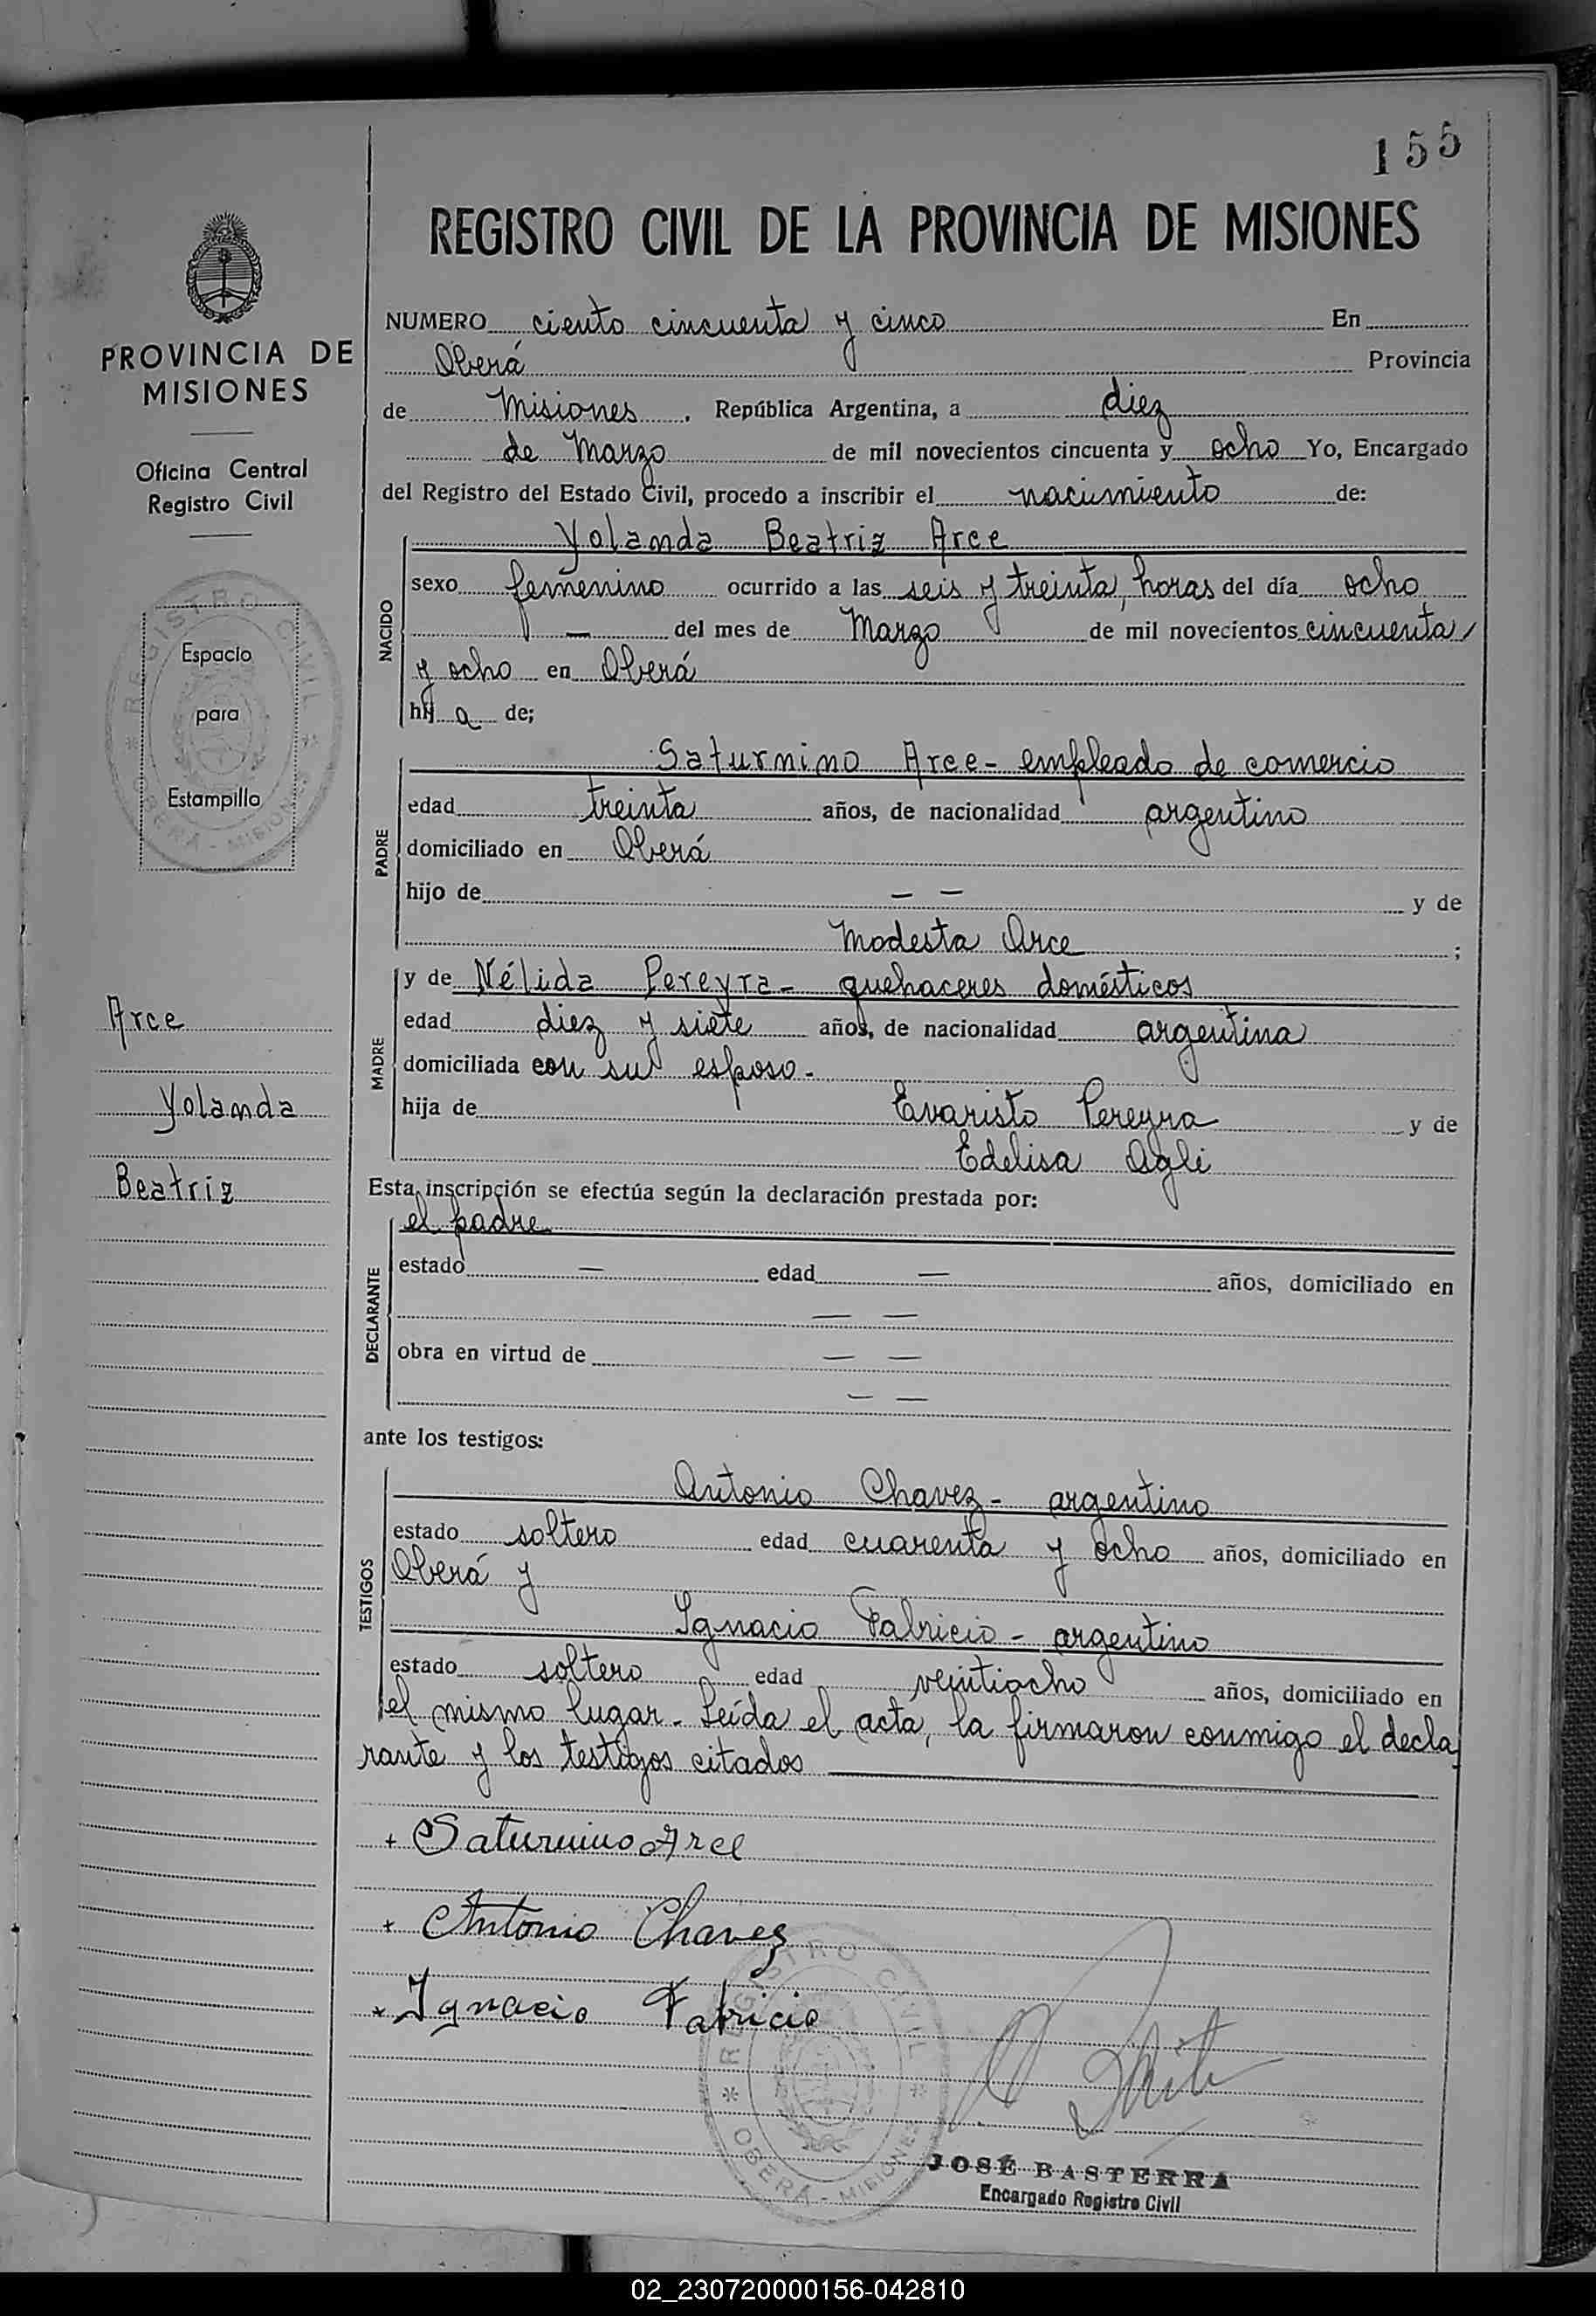 155
REGISTRO CIVIL DE LA PROVINCIA DE MISIONES
PROVINCIA DE
MISIONES
Oficina Central
Registro Civil
REGISTRO CIVIL
OBERÁ - MISIONES
Espacio
para
Estampilla
Arce
Yolanda
Beatriz
NUMERO ciento cincuenta y cinco En
Oberá Provincia
de Misiones, República Argentina, a diez
de Marzo de mil novecientos cincuenta y ocho Yo, Encargado
del Registro del Estado Civil, procedo a inscribir el nacimiento de:
NACIDO
Yolanda Beatriz Arce
sexo femenino ocurrido a las seis y treinta, horas del día ocho
— del mes de Marzo de mil novecientos cincuenta
y ocho en Oberá
hij a de;
PADRE
Saturnino Arce - empleado de comercio
edad treinta años, de nacionalidad argentino
domiciliado en Oberá
hijo de — — y de
Modesta Arce ;
MADRE
y de Nélida Pereyra - quehaceres domésticos
edad diez y siete años, de nacionalidad argentina
domiciliada con su esposo -
hija de Evaristo Pereyra y de
Edelisa Agli
Esta inscripción se efectúa según la declaración prestada por:
DECLARANTE
el padre
estado — edad — años, domiciliado en
— —
obra en virtud de — —
— —
ante los testigos:
TESTIGOS
Antonio Chavez - argentino
estado soltero edad cuarenta y ocho años, domiciliado en
Oberá y
Ignacio Fabricio - argentino
estado soltero edad veintiocho años, domiciliado en
el mismo lugar - Leída el acta, la firmaron conmigo el decla
rante y los testigos citados
+ Saturnino Arce
+ Antonio Chavez
+ Ignacio Fabricio
REGISTRO CIVIL
OBERÁ - MISIONES
JOSÉ BASTERRA
Encargado Registro Civil
02_230720000156-042810